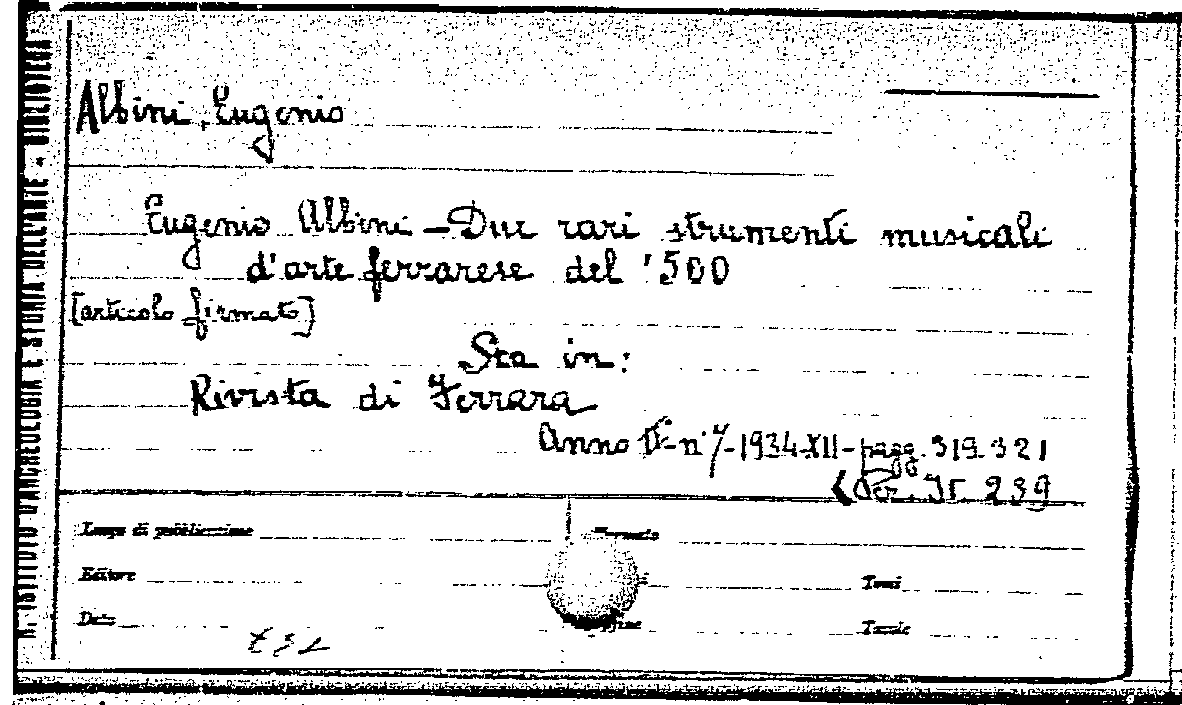 R. ISTITUTO D'ARCHEOLOGIA E STORIA DELL'ARTE - BIBLIOTECA
Albini, Eugenio
Eugenio Albini - Due rari strumenti musicali
d'arte ferrarese del '500
[articolo firmato]
Sta in:
Rivista di Ferrara
Anno II - n° 7 - 1934-XII - pagg. 319-321
(Per. It 239
Luogo di pubblicazione
Formato
Editore
Tomi
Data
Pagine
Tavole